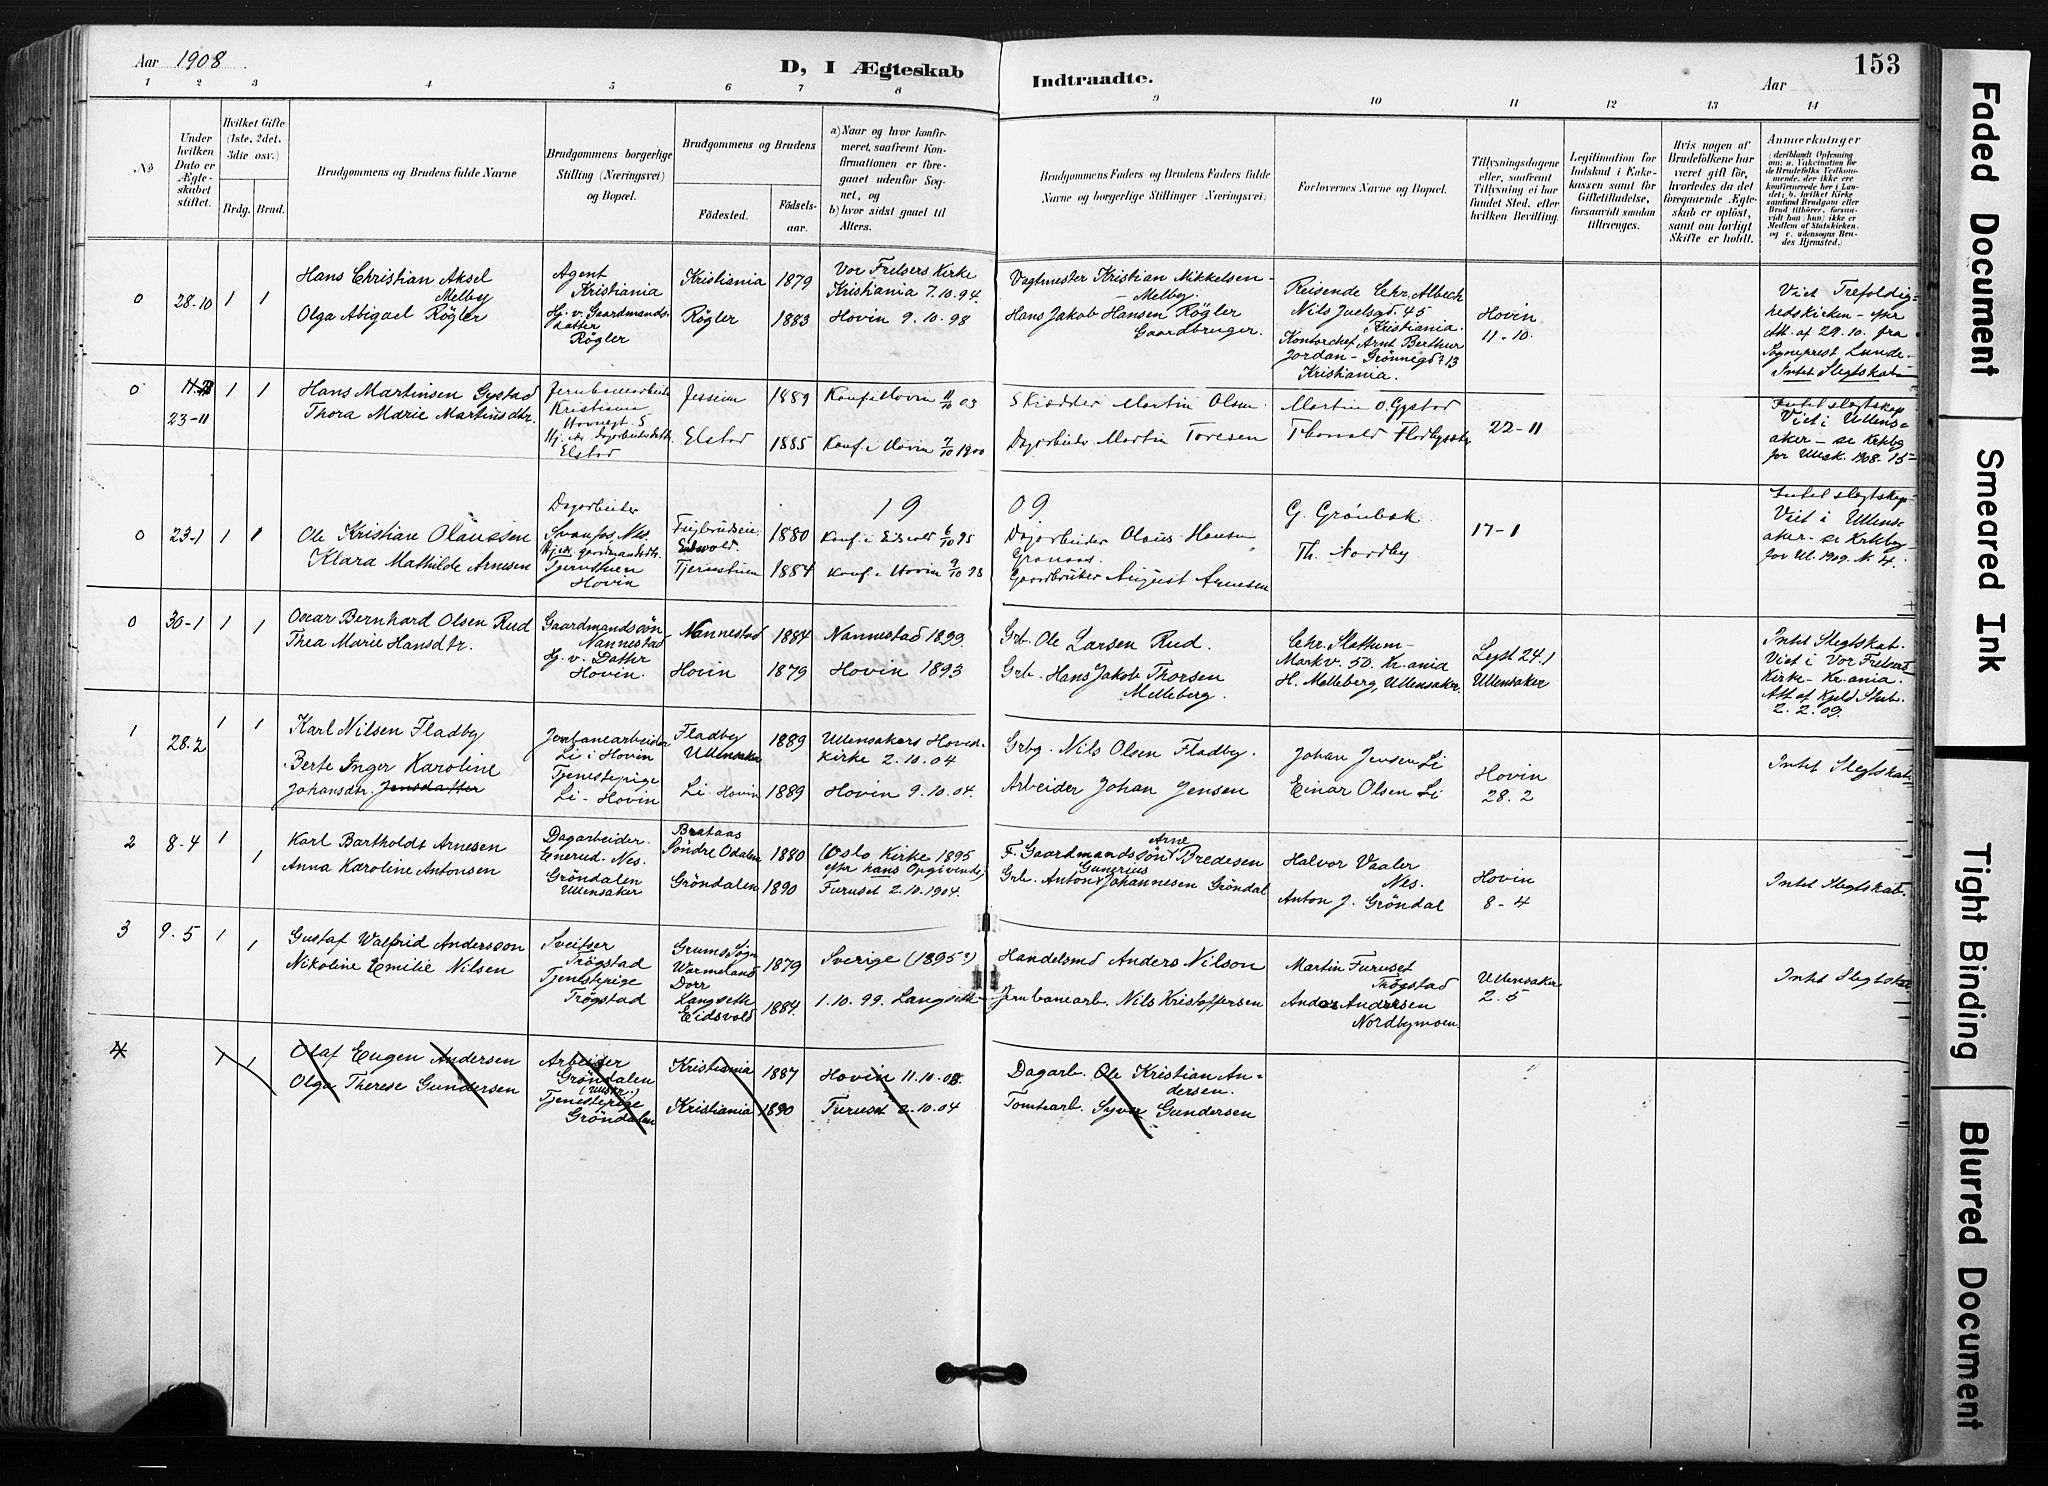 Aar 1908
D, I Ægteskab
Indtraadte.
Aar
153
1 2 3 4 5 6 7 8 9 10 11 12 13 14
No
Under hvilken Dato er Ægteskabet stiftet.
Hvilket Gifte (1ste, 2det, 3die osv.)
Brdg. Brud.
Brudgommens og Brudens fulde Navne
Brudgommens borgerlige Stilling (Næringsvei) og Bopæl.
Brudgommens og Brudens
Fødested.
Fødselsaar.
a) Naar og hvor konfirmeret, saafremt Konfirmationen er foregaaet udenfor Sognet, og
b) hvor sidst gaaet til Alters.
Brudgommens Faders og Brudens Faders fulde Navne og borgerlige Stillinger (Næringsvei)
Forlovernes Navne og Bopæl.
Tillysningsdagene eller, saafremt Tillysning ei har fundet Sted, efter hvilken Bevilling.
Legitimation for Indskud i Enkekassen samt for Giftetilladelse, forsaavidt saadan tiltrænges.
Hvis nogen af Brudefolkene har været gift før, hvorledes da det foregaaende Ægteskab er opløst, samt om lovligt Skifte er holdt.
Anmærkninger
(deriblandt Oplysning om: a. Vakcination for de Brudefolks Vedkommende, der ikke ere konfirmerede her i Landet; b. hvilket Kirkesamfund Brudgom eller Brud tilhører, forsaavidt han (hun) ikke er Medlem af Statskirken, og c. udensogns Brudes Hjemsted.)
0 28.10 1 1
Hans Christian Aksel
Melby
Olga Abigael Rögler
Agent
Kristiania
Hj. v. Gaardmandsdatter
Rögler
Kristiania 1879
Rögler 1883
Vor Frelsers Kirke
Kristiania 7.10.94.
Hovin 9.10.98
Vagtmester Kristian Mikkelsen
Melby.
Hans Jakob Hansen Rögler
Gaardbruger.
Reisende Chr. Albech
Nils Juelsgt. 45
Kristiania.
Kontorchef Arnt Berthur
Jordan - Grönnegd. 13
Kristiania.
Hovin
11.10.
Viet Trefoldighedskirken - efter
Att. af 29.10. fra
Sogneprest Lunde.
Intet Slegtskab
0 23-11 1 1
Hans Martinsen Gystad
Thora Marie Martinsdtr.
Jernbanearbeider
Kristiania
Elstad
Jesseim 1889
Elstad 1885
Konf. i Hovin 11/10 03
Konf. i Hovin 7/10 1900
Skrædder Martin Olsen
Dagarbeider Martin Toresen
Martin O. Gystad
22-11
Intet slegtskap
Viet i Ullensaker - se Krkbg
for Ullensk. 1908. 15
19 09
0 23-1 1 1
Ole Kristian Olaussen
Klara Mathilde Arnesen
Dagarbeider
Svanfos, Nes.
Tjernstuen
Hovin
Eidsvold. 1880
Tjernstuen 1884
Konf. i Eidsvold 6/10 95
Konf. i Hovin 9/10 98
Dagarbeider Olaus Hansen
Gaardbruker August Arnesen
G. Grönbek
Th. Nordby
17-1
Intet slegtskap
Viet i Ullensaker - se Krkbg
for Ul. 1909. N. 4.
0 30-1 1 1
Oscar Bernhard Olsen Rud
Thea Marie Hansdtr.
Gaardmandssön
Nannestad
Hj. v. Datter
Hovin.
Nannestad 1884
Hovin 1879
Nannestad 1899
Hovin 1893
Grb. Ole Larsen Rud.
Grb. Hans Jakob Thorsen
Melleberg.
Chr. Slathum
Markv. 50. Kr.ania
H. Melleberg, Ullensaker.
Lyst 24.1
Ullensaker
Intet Slegtskab.
Viet i Vor Frelsers
Kirke - Kr.ania.
Att af Kjeld Stub
2.2.09.
1 28.2 1 1
Karl Nilsen Fladby
Berte Inger Karoline
Johansdtr. Jensdatter
Jernbanearbeider
Li i Hovin
Tjenestepige
Li - Hovin
Fladby
Ullensaker 1889
Li. Hovin 1889
Ullensakers Hovedkirke 2.10.04
Hovin 9.10.04.
Grbg. Nils Olsen Fladby.
Arbeider Johan Jensen
Johan Jensen Li
Einar Olsen Li
Hovin
28.2
Intet Slegtskab
2 8.4 1 1
Karl Bartholdt Arnesen
Anna Karoline Antonsen
Dagarbeider.
Enerud - Nes.
Gröndalen
Ullensaker
Brataas
Söndre Odalen 1880
Gröndalen 1890
Oslo Kirke 1895
efter hans Opgivende
Furuset 2.10.1904.
F. Gaardmandssön Arne Bredesen
Grb. Anton Gunerius Johannesen Gröndal
Halvor Vaaler
Nes.
Anton J. Gröndal
Hovin
8-4
Intet Slegtskab.
3 9.5 1 1
Gustaf Walfrid Andersson
Nikoline Emilie Nilsen
Sveitser
Trögstad
Tjenestepige
Trögstad
Grums Sogn
Wärmeland 1879
Dorr
Langseth
Eidsvold 1884.
Sverige (1895?)
1.10.99. Langseth
Handelsmd Anders Nilson
Jernbanearb. Nils Kristoffersen
Martin Furuset
Trögstad
Anders Andersen
Nordbymoen.
Ullensaker
2.5
Intet Slegtskab
4 1 1
Olaf Eugen Andersen
Olga Therese Gundersen
Arbeider
Gröndalen
(Ullskr.)
Tjenestepige
Gröndalen
Kristiania 1887
Kristiania 1890
Hovin 11.10.03.
Furuset 2.10.04
Dagarb. Ole Kristian Andersen.
Tomtearb. Syver Gundersen
Faded Document
Smeared Ink
Tight Binding
Blurred Document